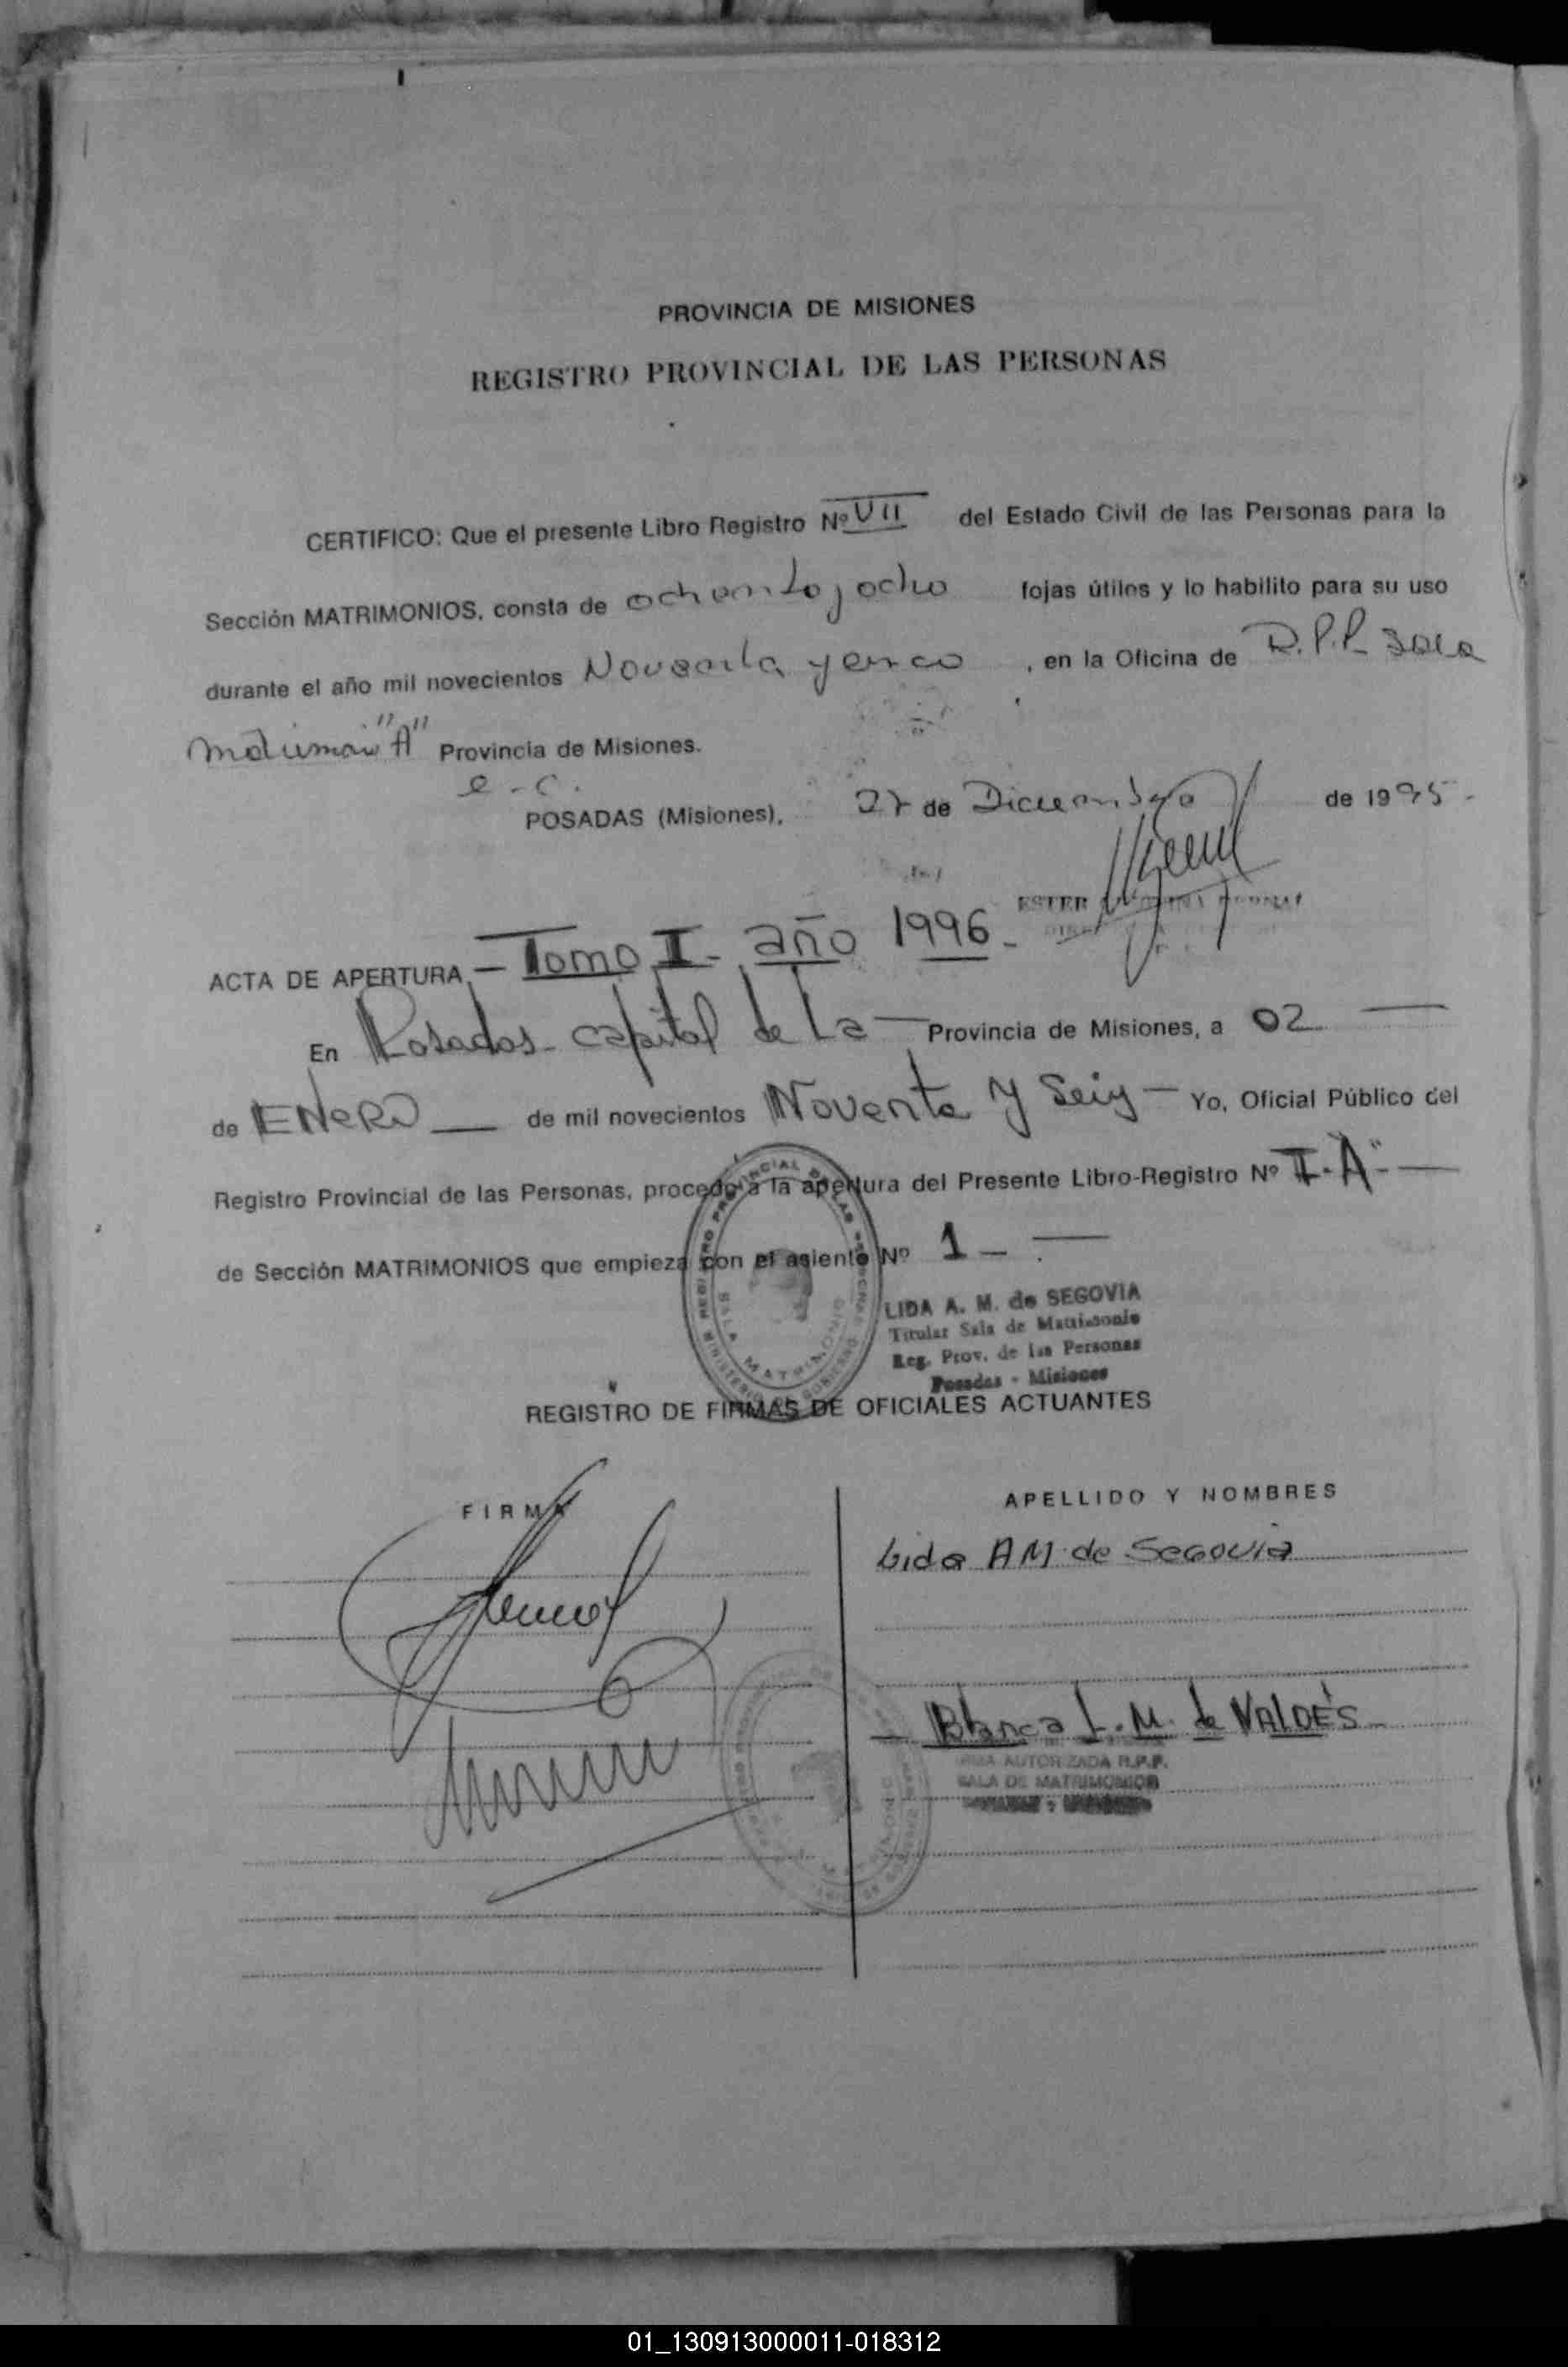 PROVINCIA DE MISIONES
REGISTRO PROVINCIAL DE LAS PERSONAS
CERTIFICO: Que el presente Libro Registro Nº VII del Estado Civil de las Personas para la
Sección MATRIMONIOS, consta de ochenta y ocho fojas útiles y lo habilito para su uso
durante el año mil novecientos Noventa y cinco, en la Oficina de R.P.P. Sala
"A" Provincia de Misiones.
POSADAS (Misiones), 27 de Diciembre de 1995-
ESTER
ACTA DE APERTURA, - Tomo I - año 1996 -
En Posadas - capital de La - Provincia de Misiones, a 02 —
de ENERO — de mil novecientos Noventa y Seis - Yo, Oficial Público del
Registro Provincial de las Personas, procedo a la apertura del Presente Libro-Registro Nº I-"A"- —
de Sección MATRIMONIOS que empieza con el asiento Nº 1 — —
LIDA A. M. de SEGOVIA
Titular Sala de Matrimonio
Reg. Prov. de las Personas
Posadas - Misiones
REGISTRO DE FIRMAS DE OFICIALES ACTUANTES
FIRMA
APELLIDO Y NOMBRES
Lida AM de SEGOVIA
— Blanca L. M. de VALDÉS —
FIRMA AUTORIZADA R.P.P.
SALA DE MATRIMONIOS
01_130913000011-018312